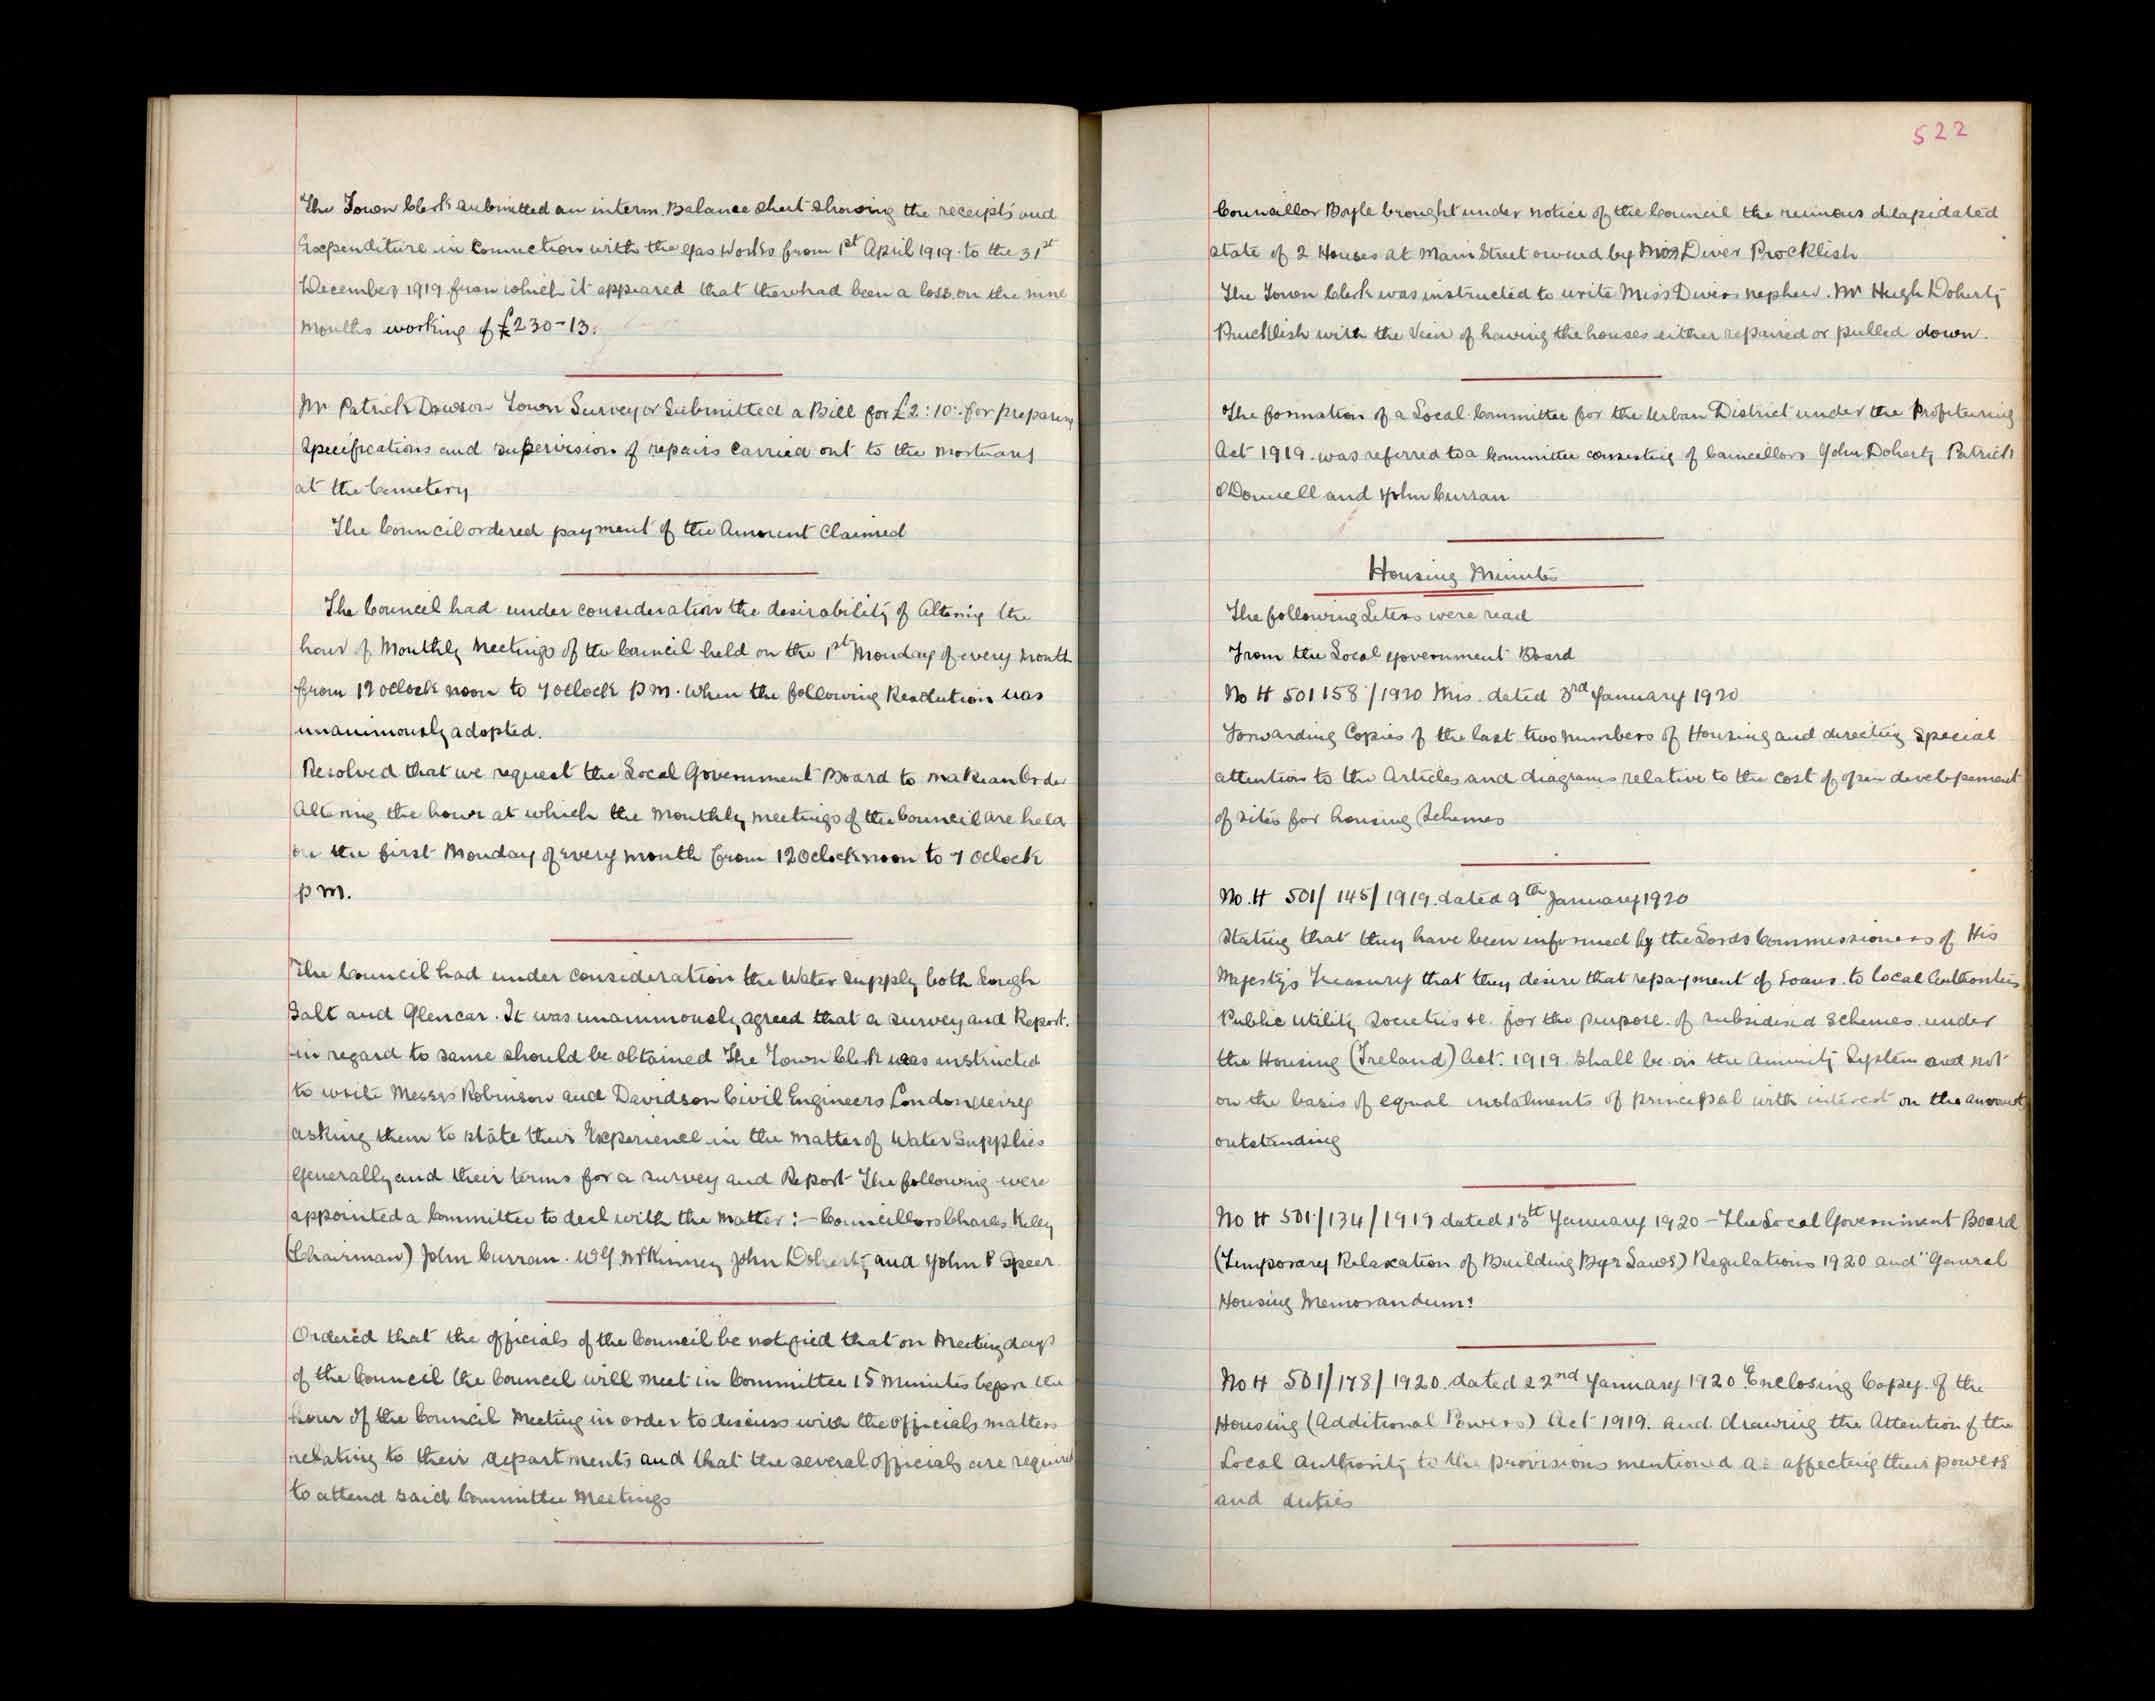 The Town Clerk submitted an interm Balance sheet showing the receipts and
Expenditure in Connection with the Gas Works from 1st April 1919 to the 31st
December 1919 from which it appeared that there had been a loss on the nine
months working of £230-13.
Mr Patrick Dawson Town Surveyor Submitted a Bill for £2:10: for preparing
Specifications and supervision of repairs carried out to the mortuary
at the Cemetery
The Council ordered payment of the Amount Claimed
The Council had under consideration the desirability of Altering the
hour of Monthly Meetings of the Council held on the 1st Monday of every month
from 12 oclock noon to 7 oclock p m. when the following Resolution was
unanimously adopted.
Resolved that we request the Local Government Board to make an Order
Altering the hour at which the monthly meetings of the Council are held
on the first Monday of every month from 12 Oclock noon to 7 Oclock
p m.
The Council had under consideration the Water supply both Lough
Salt and Glencar. It was unanimously agreed that a survey and Report.
in regard to same should be obtained The Town Clerk was instructed
to write Messrs Robinson and Davidson Civil Engineers Londonderry
asking them to state their Experience in the matter of Water Supplies
Generally and their terms for a survey and Report The following were
appointed a Committee to deal with the matter:- Councillors Charles Kelly
(Chairman) John Curran. WG McKinney John Doherty and John P Speer
Ordered that the officials of the Council be notified that on Meeting days
of the Council the Council will meet in Committee 15 Minutes before the
hour of the Council Meeting in order to discuss with the officials matters
relating to their departments and that the several officials are required
to attend said Committee Meetings
522
Councillor Boyle brought under notice of the Council the ruinous dilapidated
state of 2 Houses at Main Street owned by Miss Diver Procklish
The Town Clerk was instructed to write Miss Divers nephew. Mr Hugh Doherty
Prucklish with the View of having the houses either repaired or pulled down.
The formation of a Local Committee for the Urban District under the Profiteering
Act 1919. was referred to a Committee consisting of Councillors John Doherty Patrick
ODonnell and John Curran
Housing Minutes
The following Leters were read
From the Local Government Board
No H 501 158/1920 Mis. dated 3rd January 1920
Forwarding Copies of the last two numbers of Housing and directing Special
attention to the Articles and diagrams relative to the cost of open developement
of sites for housing Schemes
No. H 501/145/1919 dated 9th January 1920
Stating that they have been informed by the Lords Commissioners of His
Majesty's Treasury that they desire that repayment of Loans. to local Authorities
Public Utility Societies &c. for the purpose of subsidised Schemes under
the Housing (Ireland) Act. 1919 shall be on the Annuity System and not
on the basis of equal instalments of principal with interest on the amount
outstanding
No H 501/134/1919 dated 13th January 1920 - The Local Government Board
(Temporary Relaxation of Building Bye Laws) Regulations 1920 and "General
Housing Memorandum!
No H 501/178/1920. dated 22nd January 1920. Enclosing Copy of the
Housing (Additional Powers) Act 1919. and drawing the Attention of the
Local Authority to the provisions mentioned as affecting their powers
and duties